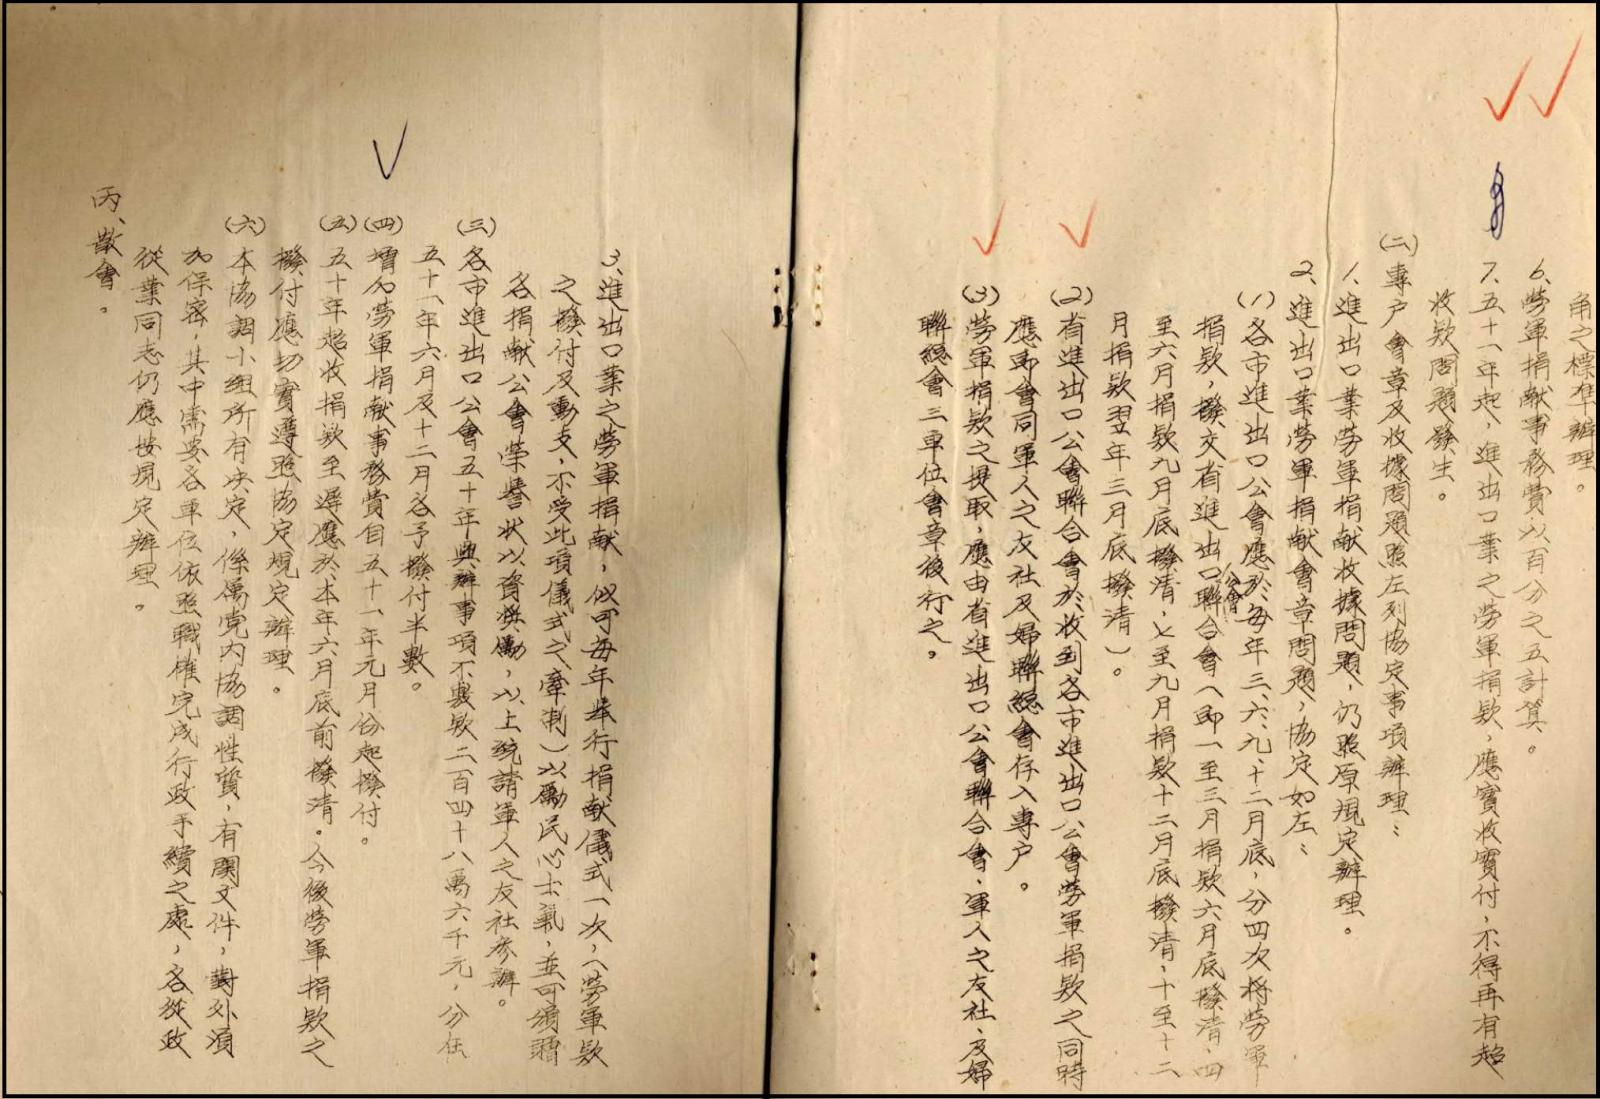 角之標準辦理。
6.勞軍捐献事務費以百分之五計算。
7.五十一年起，進出口業之勞軍捐欵，應實收實付，不得再有超
收欵問題發生。
㈡專户會章及收據問題照左列協定事項辦理：
1.進出口業勞軍捐献收據問題，仍照原規定辦理。
2.進出口業勞軍捐献會章問題，協定如左：
(1)各市進出口公會應於每年三、六、九、十二月底，分四次將勞軍
捐欵，撥交省進出口公會聯合會（即一至三月捐欵六月底撥清，四
至六月捐欵九月底撥清，七至九月捐欵十二月底撥清，十至十二
月捐欵翌年三月底撥清）。
(2)省進出口公會聯合會於收到各市進出口公會勞軍捐欵之同時
應即會同軍人之友社及婦聯總會存入專户。
(3)勞軍捐欵之提取，應由省進出口公會聯合會、軍人之友社、及婦
聯總會三單位會章後行之。
3.進出口業之勞軍捐献，似可每年舉行捐献儀式一次，（勞軍欵
之撥付及動支，不受此項儀式之牽制）以勵民心士氣，並可頒贈
各捐献公會榮譽狀以資獎勵，以上統請軍人之友社參辦。
㈢各市進出口公會五十年興辦事項不敷欵二百四十八萬六千元，分在
五十一年六月及十二月各予撥付半數。
㈣增列勞軍捐献事務費自五十一年元月份起撥付。
㈤五十年超收捐欵至遲應於本年六月底前撥清。今後勞軍捐欵之
撥付應切實遵照協定規定辦理。
㈥本協調小組所有決定，係屬党内協調性質，有関文件，對外須
加保密，其中需要各單位依照職權完成行政手續之處，各從政
從業同志仍應按規定辦理。
丙、散會。